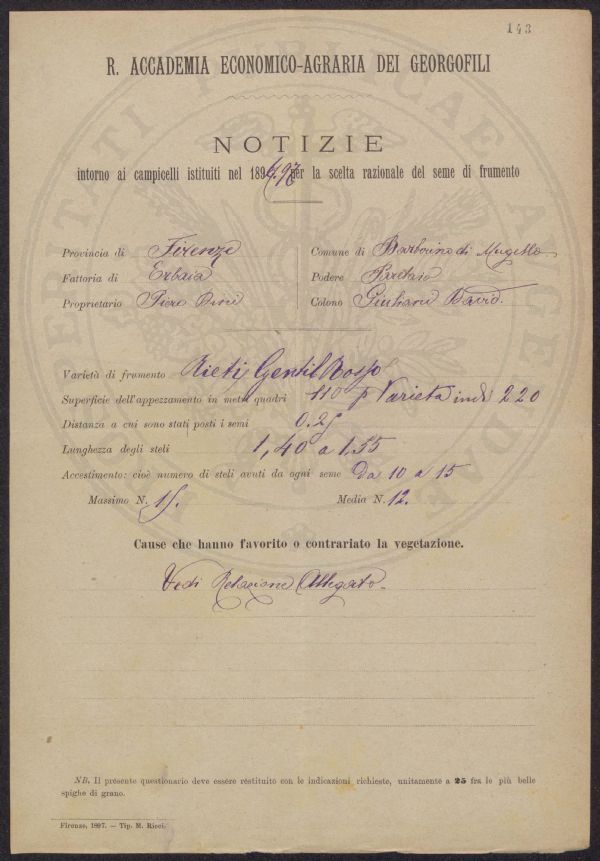 143
R. ACCADEMIA ECONOMICO-AGRARIA DEI GEORGOFILI
NOTIZIE
intorno ai campicelli istituiti nel 1896.97 per la scelta razionale del seme di frumento
Provincia di Firenze
Comune di Barberino di Mugello
Fattoria di Erbaia
Podere
Proprietario Piero Bini
Colono Giuliani David.
Varietà di frumento Rieti, Gentil Rosso
Superficie dell'appezzamento in metri quadri 110 p Varietà indi 220
Distanza a cui sono stati posti i semi 0.25
Lunghezza degli steli 1,40 a 1.55
Accestimento: cioè numero di steli avuti da ogni seme da 10 a 15
Massimo N. 15. Media N. 12.
Cause che hanno favorito o contrariato la vegetazione.
Vedi Relazione Allegato
NB. Il presente questionario deve essere restituito con le indicazioni richieste, unitamente a 25 fra le più belle
spighe di grano.
Firenze, 1897. — Tip. M. Ricci.